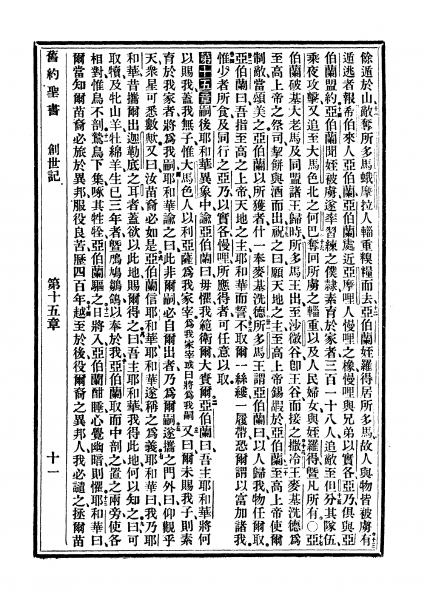 餘遁於山敵奪所多馬蛾摩拉人輜重糗糧而去亞伯蘭姪羅得居所多馬故人與物皆被虜有
遁逃者報希伯來人亞伯蘭亞伯蘭處近亞摩哩人慢哩之橡慢哩與兄弟以實各亞乃俱與亞
伯蘭盟約亞伯蘭聞姪被虜遂率習練之僕隸素育於家者三百一十八人追敵至但分其隊伍
乘夜攻擊又追至大馬色北之何巴奪回所虜之輜重以及人民婦女與姪羅得暨凡所有○亞
伯蘭破基大老馬及同盟諸王歸時所多馬王出至沙微谷卽王谷而接之撒冷王麥基洗德為
至高上帝之祭司挈餅與酒而出祝之曰願天地之主至高上帝錫嘏於亞伯蘭至高上帝使爾
制敵當頌美之亞伯蘭以所獲者什一奉麥基洗德所多馬王謂亞伯蘭曰以人歸我物任爾取
亞伯蘭曰吾指至高之上帝天地之主耶和華而誓不取爾一絲縷一履帶恐爾謂以富加諸我
惟少者所食及同行之亞乃以實各慢哩所應得者可任意取
第十五章嗣後耶和華異象中諭亞伯蘭曰毋懼我範衛爾大賚爾亞伯蘭曰吾主耶和華將何
以賜我蓋我無子惟大馬色人以利亞薩為我家宰為我家宰或曰將為我嗣又曰爾未賜我子則素
育於我家者將為我嗣耶和華諭之曰此非爾嗣必自爾出者乃為爾嗣遂攜之門外曰仰觀乎
天衆星可悉數歟又曰汝苗裔必如是亞伯蘭信耶和華耶和華遂稱之為義耶和華曰我乃耶
和華昔攜爾出迦勒底之耳者蓋欲以此地賜爾得之曰吾主耶和華我得此地何以知之曰可
取犢及牝山羊牡綿羊生已三年者暨鳲鳩鶵鴿以奉於我亞伯蘭取而中剖之置之兩旁使各
相對惟鳥不剖鷙鳥下集啄其牲牷亞伯蘭驅之日將入亞伯蘭酣睡心覺幽暗則懼耶和華曰
爾當知爾苗裔必旅於異邦服役良苦歷四百年越至於後役爾裔之異邦人我必譴之拯爾苗
舊約聖書 創世記 第十五章 十一